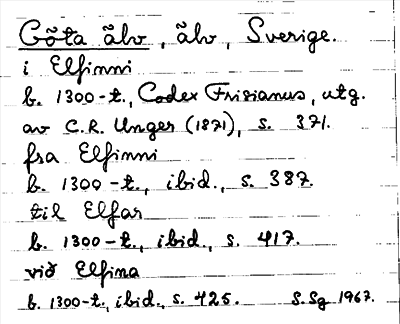 Göta älv, älv, Sverige.
i Elfinni
b. 1300-t., Codex Frisianus, utg.
av C.R. Unger (1871), s. 371.
fra Elfinni
b. 1300-t., ibid., s. 387.
til Elfar
b. 1300-t., ibid., s. 417.
við Elfina
b. 1300-t., ibid., s. 425. S.Sg 1967.